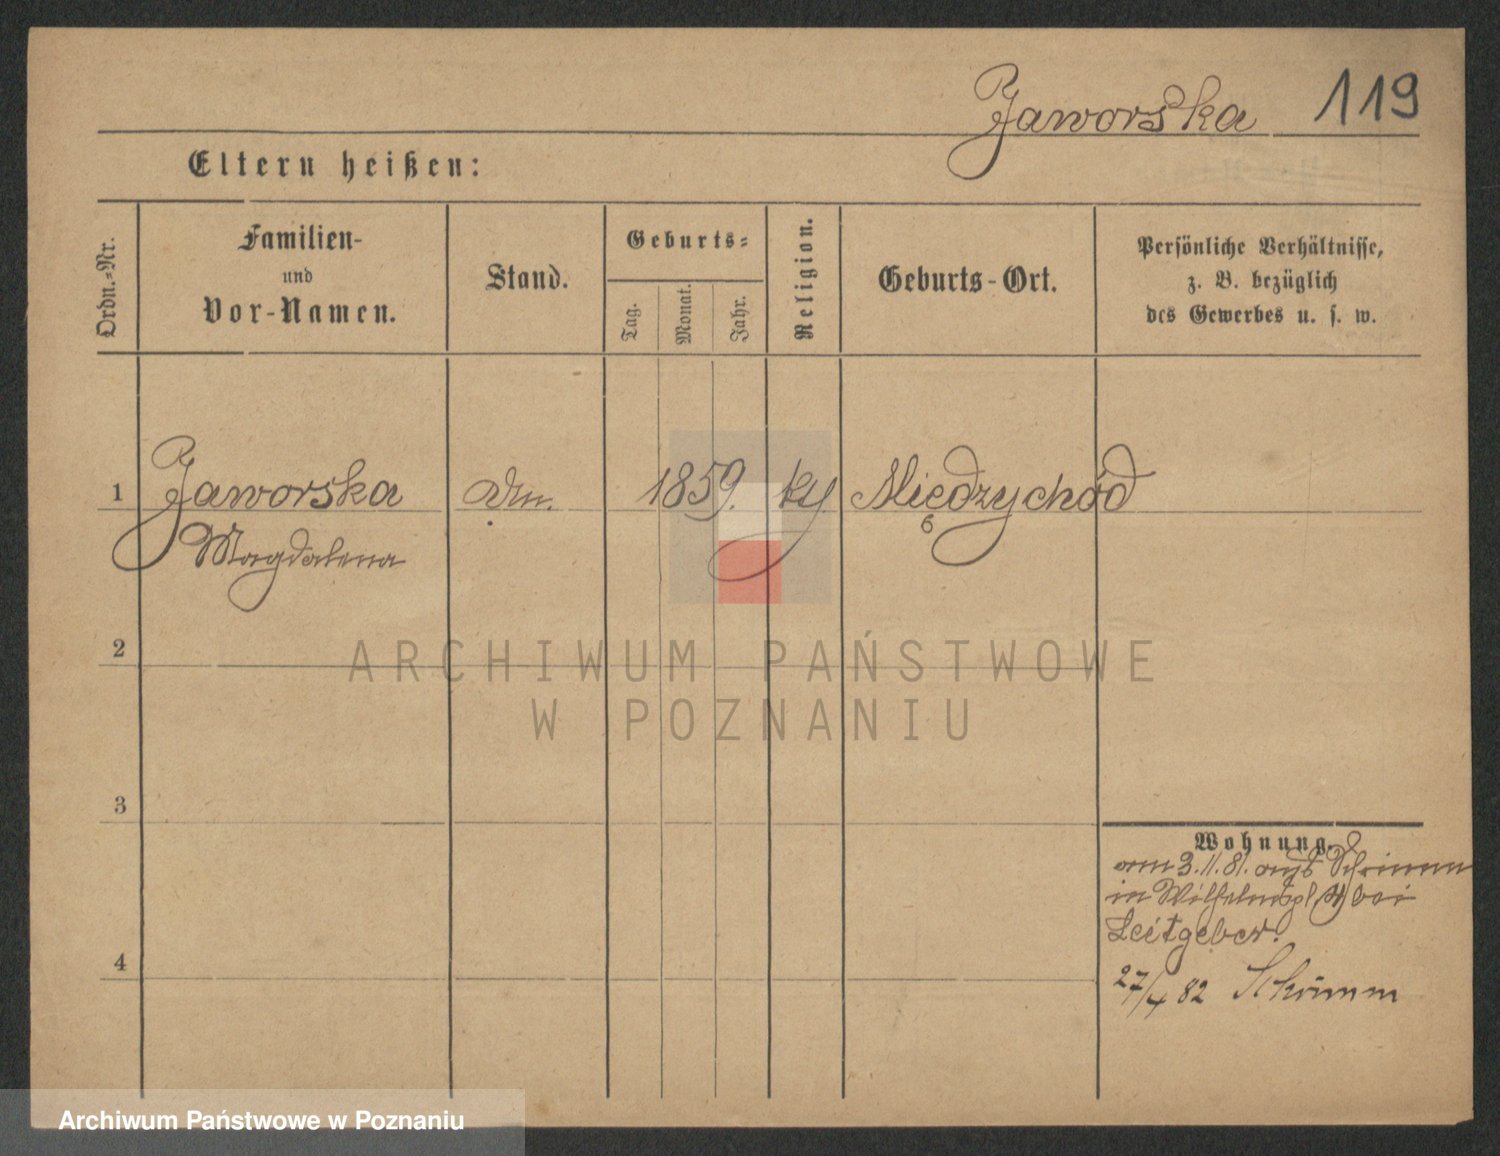 Jaworska 119
Eltern heißen:
Ordn.-Nr.
Familien-
und
Vor-Namen.
Stand.
Geburts-
Tag.
Monat.
Jahr.
Religion.
Geburts-Ort.
Persönliche Verhältnisse,
z. B. bezüglich
des Gewerbes u. s. w.
1 Jaworska 1859. Międzychód
Magdalena
2
3
4
Wohnung.
3.11.81. aus Schrimm
in Wilhelmspl bei
Leitgeber.
27/4 82 Schrimm
ARCHIWUM PAŃSTWOWE
W POZNANIU
Archiwum Państwowe w Poznaniu